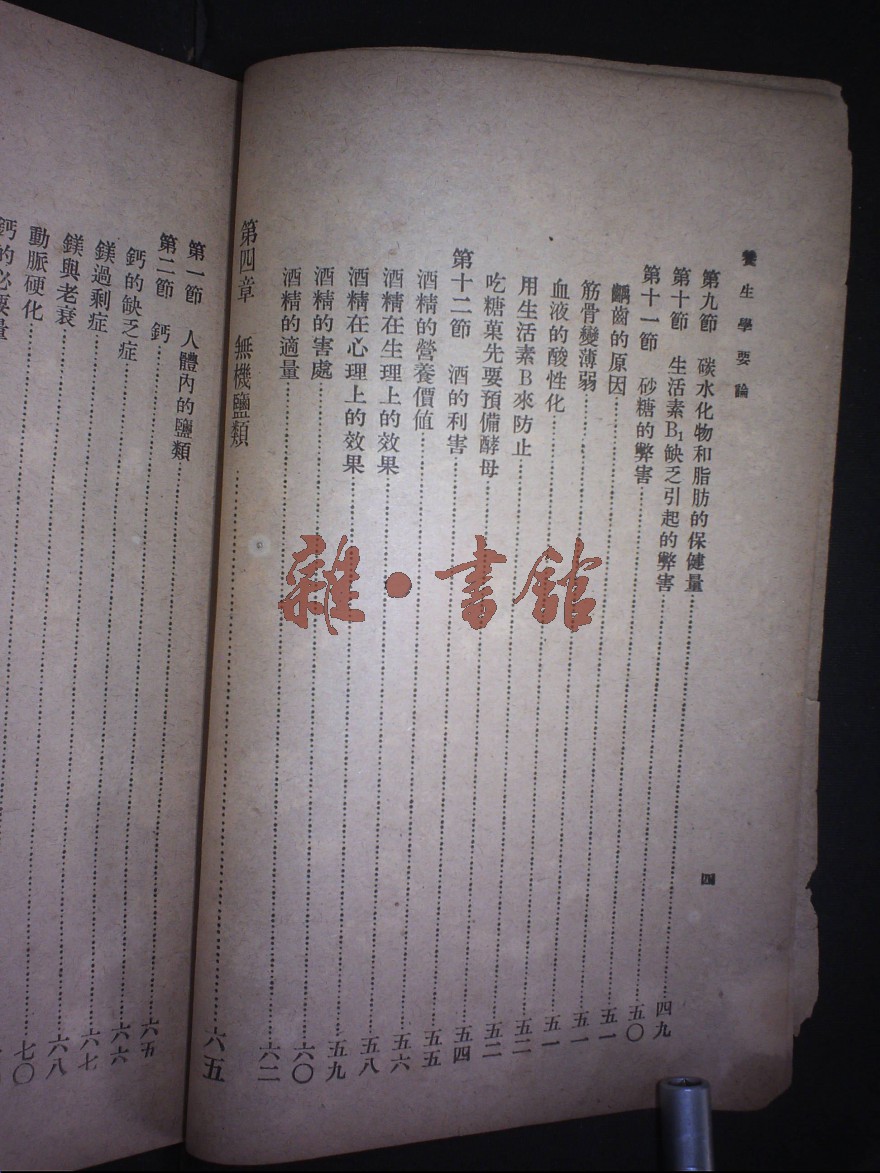 養生學要論
四
第九節 碳水化物和脂肪的保健量……四九
第十節 生活素B₁缺乏引起的弊害……五〇
第十一節 砂糖的弊害……五一
齲齒的原因……五一
筋骨變薄弱……五一
血液的酸性化……五二
用生活素B來防止……五二
吃糖菓先要預備酵母……五四
第十二節 酒的利害……五五
酒精的營養價值……五六
酒精在生理上的效果……五八
酒精在心理上的效果……五九
酒精的害處……六〇
酒精的適量……六二
第四章 無機鹽類……六五
第一節 人體內的鹽類……六五
第二節 鈣……六六
鈣的缺乏症……六七
鎂過剩症……六八
鎂與老衰……七〇
動脈硬化……
鈣的必要量
雜·書館